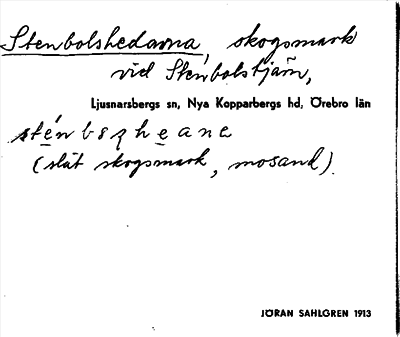 Stenbolshedarna, skogsmark
vid Stenbolstjärn,
Ljusnarsbergs sn, Nya Kopparbergs hd, Örebro län
(slät skogsmark, mosand).
JÖRAN SAHLGREN 1913